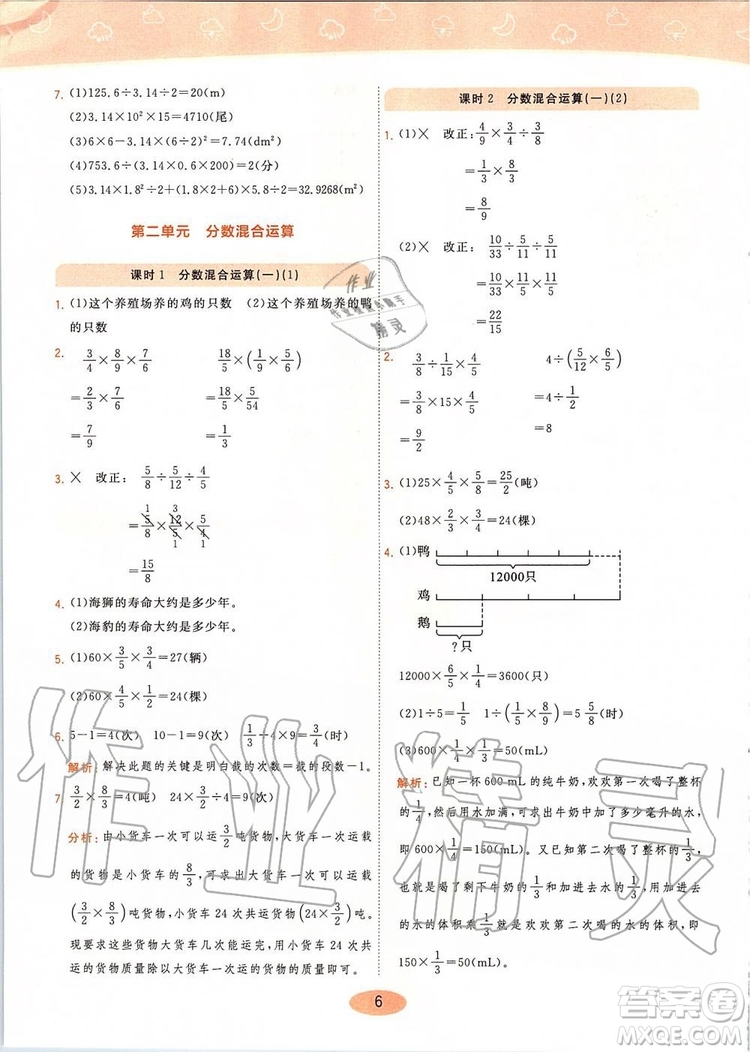 7. (1)125.6÷3.14÷2=20(m)
(2)3.14×10²×15=4710(尾)
(3)6×6-3.14×(6÷2)²=7.74(dm²)
(4)753.6÷(3.14×0.6×200)=2(分)
(5)3.14×1.8²÷2+(1.8×2+6)×5.8÷2=32.9268(m²)
第二单元 分数混合运算
课时1 分数混合运算(一)(1)
1. (1)这个养殖场养的鸡的只数 (2)这个养殖场养的鸭
的只数
2. 3/4×8/9×7/6 18/5×(1/9×5/6)
=2/3×7/6 =18/5×5/54
=7/9 =1/3
3. × 改正: 5/8÷5/12÷4/5
=5/8×12/5×5/4 1 3 5 1 1
=15/8
4. (1)海狮的寿命大约是多少年。
(2)海豹的寿命大约是多少年。
5. (1)60×3/5×3/4=27(辆)
(2)60×4/5×1/2=24(棵)
6. 5-1=4(次) 10-1=9(次) 1/3÷4×9=3/4(时)
解析: 解决此题的关键是明白截的次数=截的段数-1。
7. 3/2×8/3=4(吨) 24×3/2÷4=9(次)
分析: 由小货车一次可以运3/2吨货物,大货车一次可以运载
的货物是小货车的8/3,可以求出大货车一次可以运载
(3/2×8/3)吨货物,小货车24次共运货物(24×3/2)吨。
现要求这些货物大货车几次能运完,用小货车24次共
运的货物质量除以大货车一次运的货物质量即可。
课时2 分数混合运算(一)(2)
1. (1)× 改正: 4/9×3/4÷3/8
=1/3×8/3
=8/9
(2)× 改正: 10/33÷5/11÷5/11
=10/33×11/5×11/5
=22/15
2. 3/8÷1/15×4/5 4÷(5/12×6/5)
=3/8×15×4/5 =4÷1/2
=9/2 =8
3. (1)25×4/5×5/8=25/2(吨)
(2)48×2/3×3/4=24(棵)
4. (1)鸭
12000只
鸡
鹅
?只
12000×6/5×1/4=3600(只)
(2)1÷5=1/5 1÷(1/5×8/9)=5 5/8(时)
(3)600×1/4×1/3=50(mL)
解析: 已知一杯600 mL的纯牛奶,欢欢第一次喝了整杯
的1/4,然后用水加满,可求出牛奶中加了多少毫升的水,
即600×1/4=150(mL)。又已知第二次喝了整杯的1/3,
也就是喝了剩下牛奶的1/3和加入的水的1/3,用加入
的水的体积乘1/3就是欢欢第二次喝的水的体积,即
150×1/3=50(mL)。
6
作业
精灵
作业精灵
答案圈
MXQE.COM